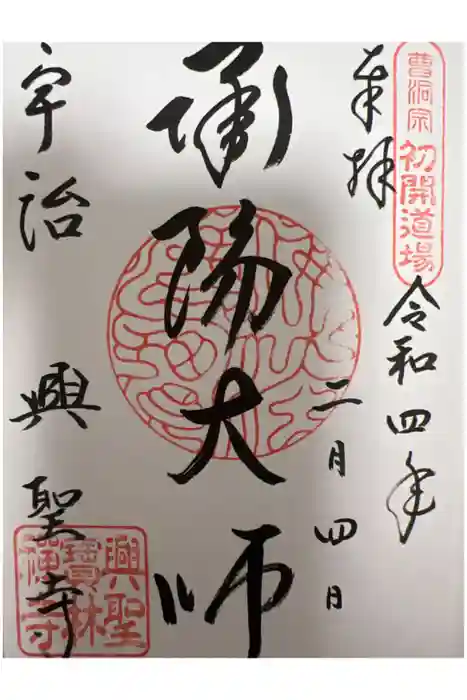 曹洞宗
初開道場
奉拝
令和四年
二月四日
承陽大師
宇治 興聖寺
興聖
寶林
禅寺